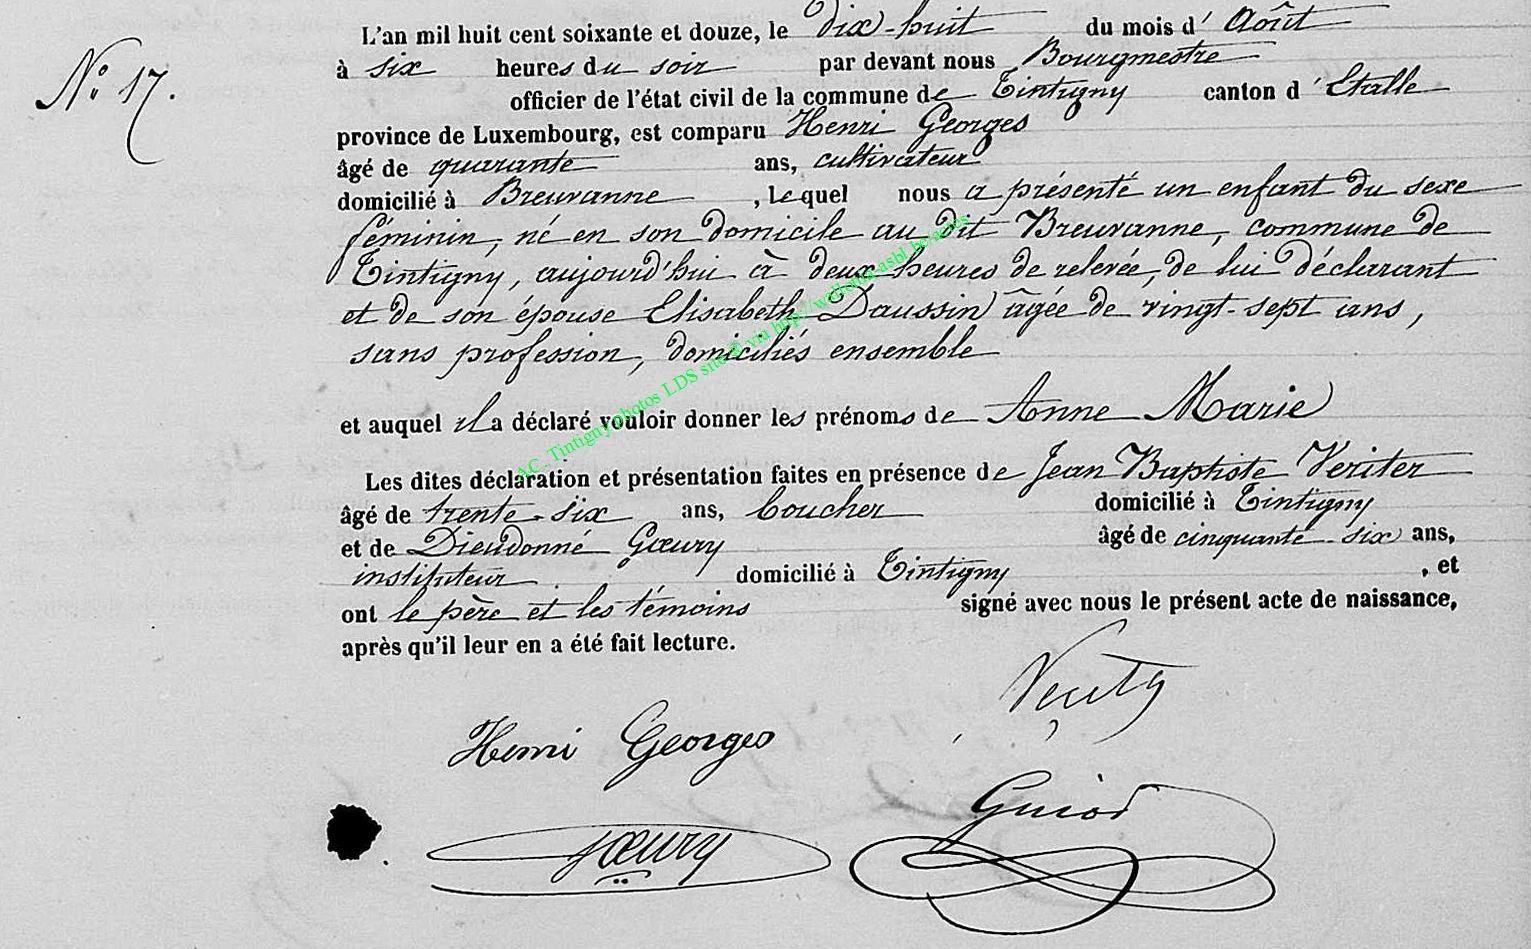 N° 17.
L'an mil huit cent soixante et douze, le dix-huit du mois d'Août
à six heures du soir par devant nous Bourgmestre
officier de l'état civil de la commune de Tintigny canton d'Etalle
province de Luxembourg, est comparu Henri Georges
âgé de quarante ans, cultivateur
domicilié à Breuvanne, lequel nous a présenté un enfant du sexe
féminin, né en son domicile au dit Breuvanne, commune de
Tintigny, aujourd'hui à deux heures de relevée, de lui déclarant
et de son épouse Elisabeth Daussin âgée de vingt-sept ans,
sans profession, domiciliés ensemble
et auquel il a déclaré vouloir donner les prénoms de Anne Marie
Les dites déclaration et présentation faites en présence de Jean Baptiste Veriter
âgé de trente-six ans, boucher domicilié à Tintigny
et de Dieudonné Gœury âgé de cinquante six ans,
instituteur domicilié à Tintigny, et
ont le père et les témoins signé avec nous le présent acte de naissance,
après qu'il leur en a été fait lecture.
Henri Georges
Gœury
AC_Tintigny photos LDS site © via http://wallonia-asbl.be/actes